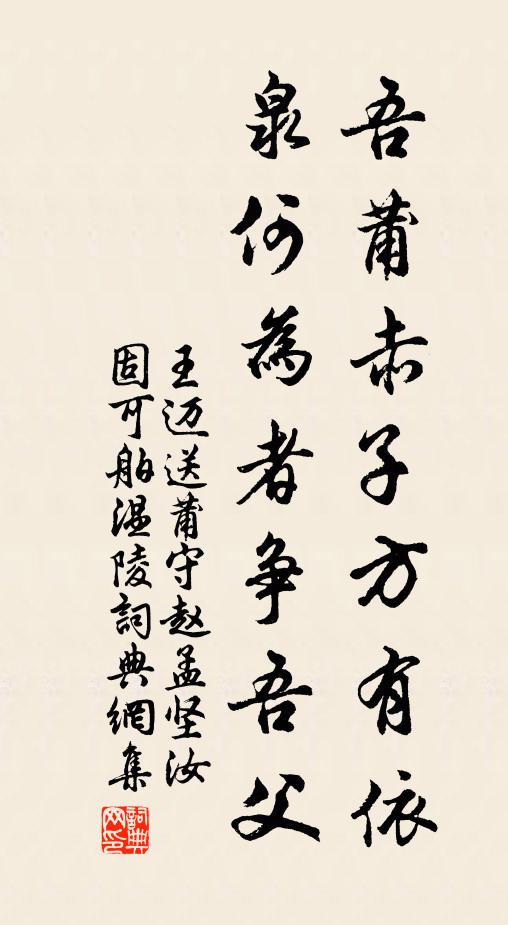 吾莆赤子方有依
泉何為者争吾父
王迈送莆守赵孟坚汝
固可舶温陵詞典網集
詞典
网印